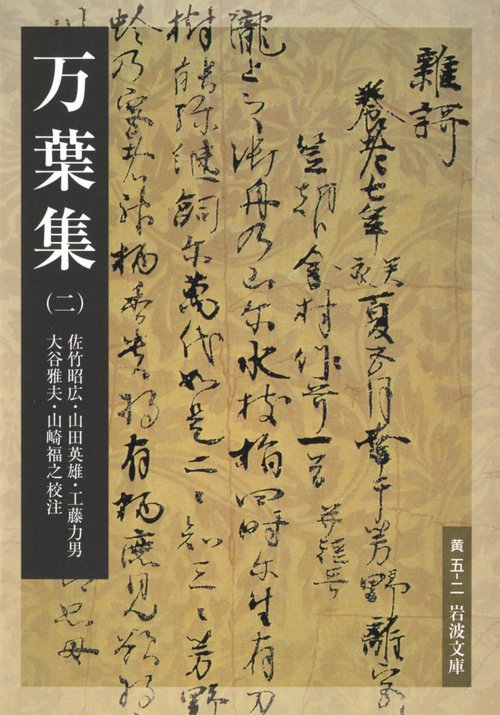 万葉集
(二)
佐竹昭広・山田英雄・工藤力男
大谷雅夫・山崎福之校注
雜謌
養老七年癸亥夏五月幸于芳野離宮
笠朝臣金村作哥一首 并短哥
瀧上之御舟乃山尓水枝指四時尓生有刀
樹能弥継飼尓萬代如是二〻知三〻芳野
蛉乃宮者神柄香貴将有柄鹿見欲将
黄 五-二 岩波文庫